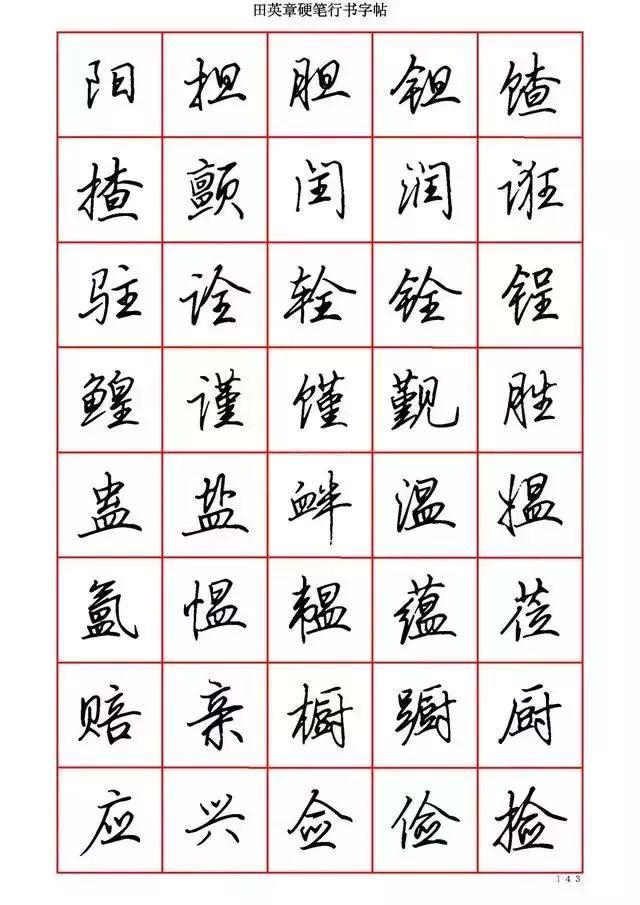 田英章硬笔行书字帖
阳 担 胆 钽 馇
揸 颤 闰 润 诳
驻 诠 轻 铨 锃
鳇 谨 馑 觐 胜
蛊 盐 衅 温 揾
氲 愠 韫 蕴 莅
赔 亲 橱 蹰 厨
应 兴 佥 俭 捡
143